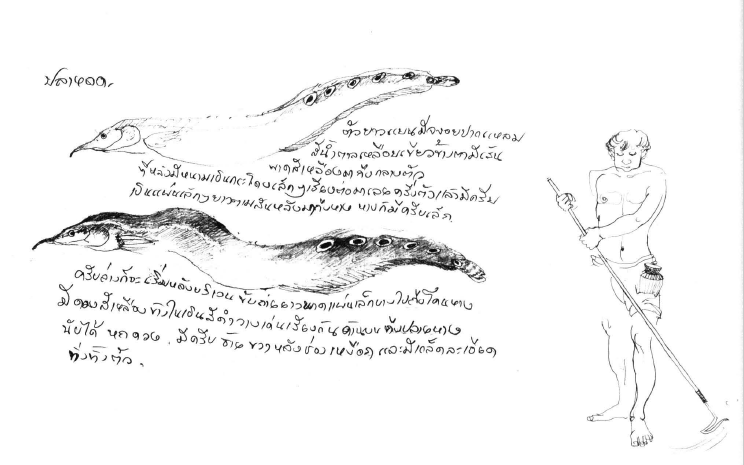 ปลาหลด.
ตัวยาวแบนมีจงอยปากแหลม
สีน้ำตาลเหลือบเขียวข้างตามีเส้น
พาดสีเหลืองมาถึงกลางตัว
ที่หลังมีหนามเป็นกระโดงเล็กๆเรียงต่อมาเลยครึ่งตัวแล้วมีครีบ
เป็นแผ่นเล็กๆยาวตามสันหลังมาถึงหาง หางก็มีครีบเล็ก
ครีบล่างก็จะเริ่มหลังบริเวณ ยาวพาดแผ่นเล็กบางไปถึงโคนหาง
มีดวงสีเหลืองข้างในเป็นสีดำวางเด่นเรียงกัน ถึงปลายหาง
นับได้ หกดวง. มีครีบ ซ้าย ขวา หลังช่อง เหงือก และมีเกล็ดละเอียด
ทั้งตัว.